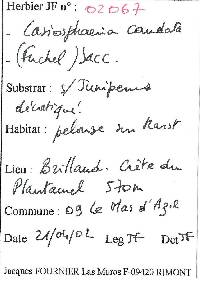 Herbier JF n° : 02067
- Lasiosphaeria caudata
- (Fuckel) Sacc.
Substrat : s/ Juniperus
décortiqué.
Habitat : pelouse sur karst
Lieu : Brillaud. Crête du
Plantaurel 570m
Commune : 09 Le Mas d'Azil
Date 21/04/02 Leg JF Det JF
Jacques FOURNIER Las Muros F-09420 RIMONT